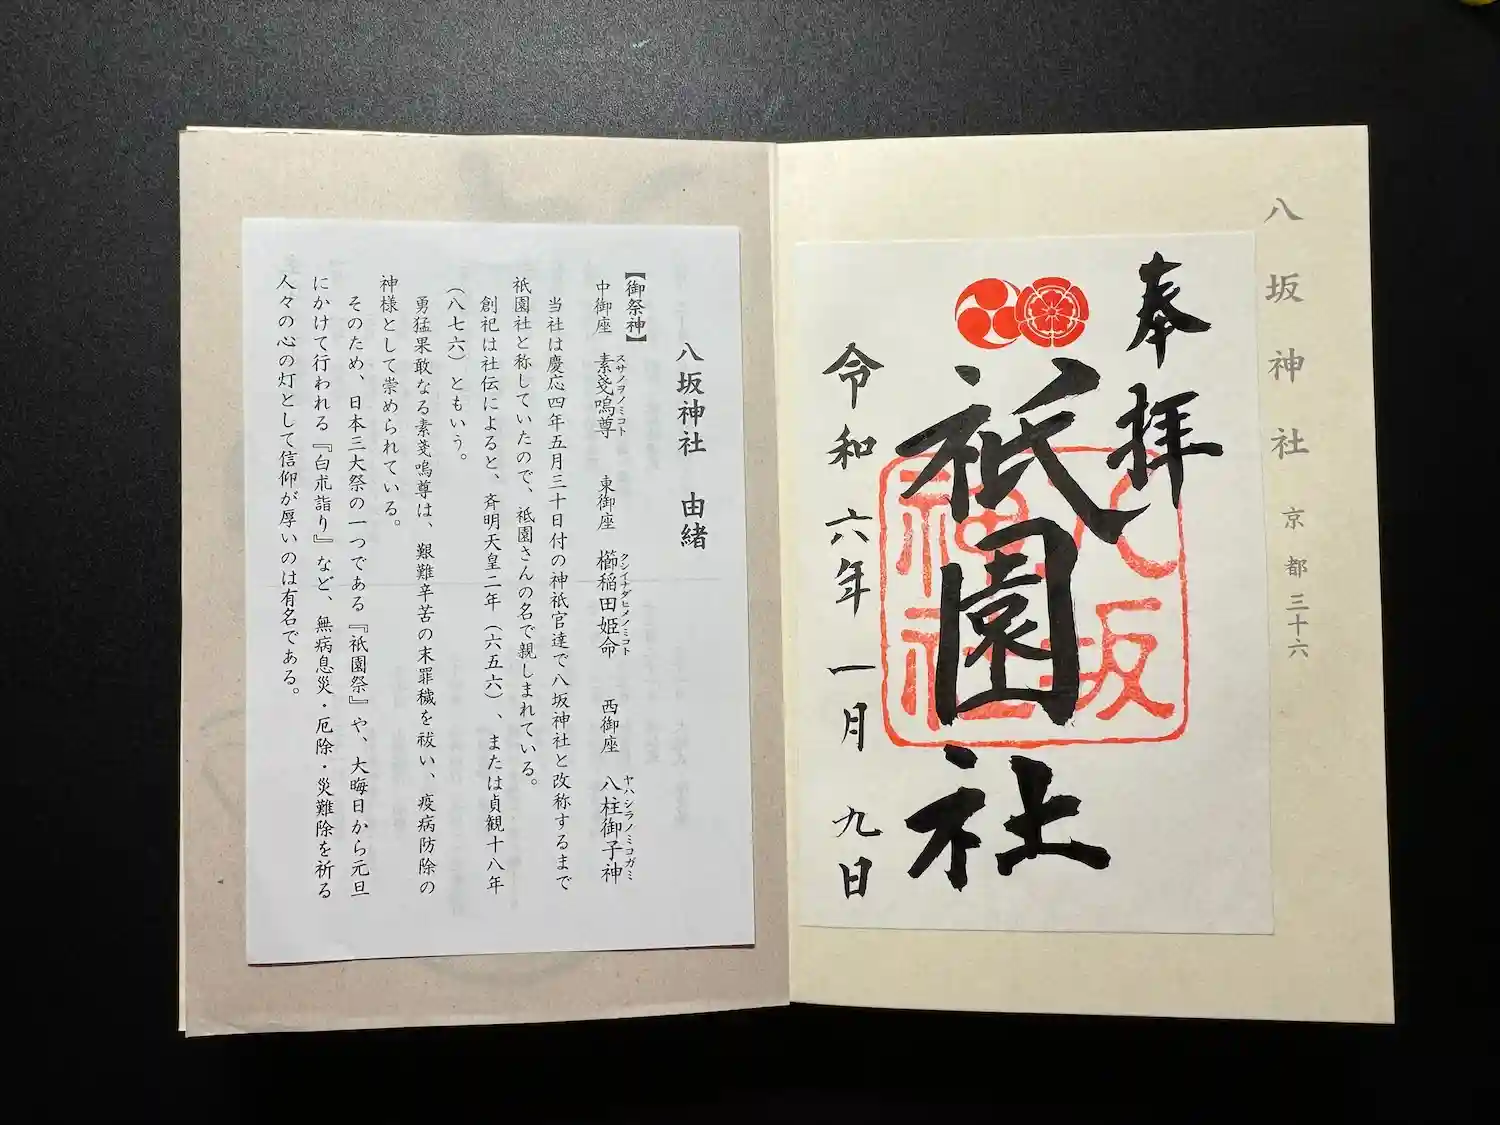 八坂神社 京都三十六
奉拝
祇園社
八坂神社
令和六年一月九日
八坂神社 由緒
【御祭神】
中御座 素戔嗚尊 東御座 櫛稲田姫命 西御座 八柱御子神
スサノヲノミコト クシイナダヒメノミコト ヤハシラノミコガミ
当社は慶応四年五月三十日付の神祇官達で八坂神社と改称するまで
祇園社と称していたので、祇園さんの名で親しまれている。
創祀は社伝によると、斉明天皇二年（六五六）、または貞観十八年
（八七六）ともいう。
勇猛果敢なる素戔嗚尊は、艱難辛苦の末罪穢を祓い、疫病防除の
神様として崇められている。
そのため、日本三大祭の一つである『祇園祭』や、大晦日から元旦
にかけて行われる『白朮詣り』など、無病息災・厄除・災難除を祈る
人々の心の灯として信仰が厚いのは有名である。